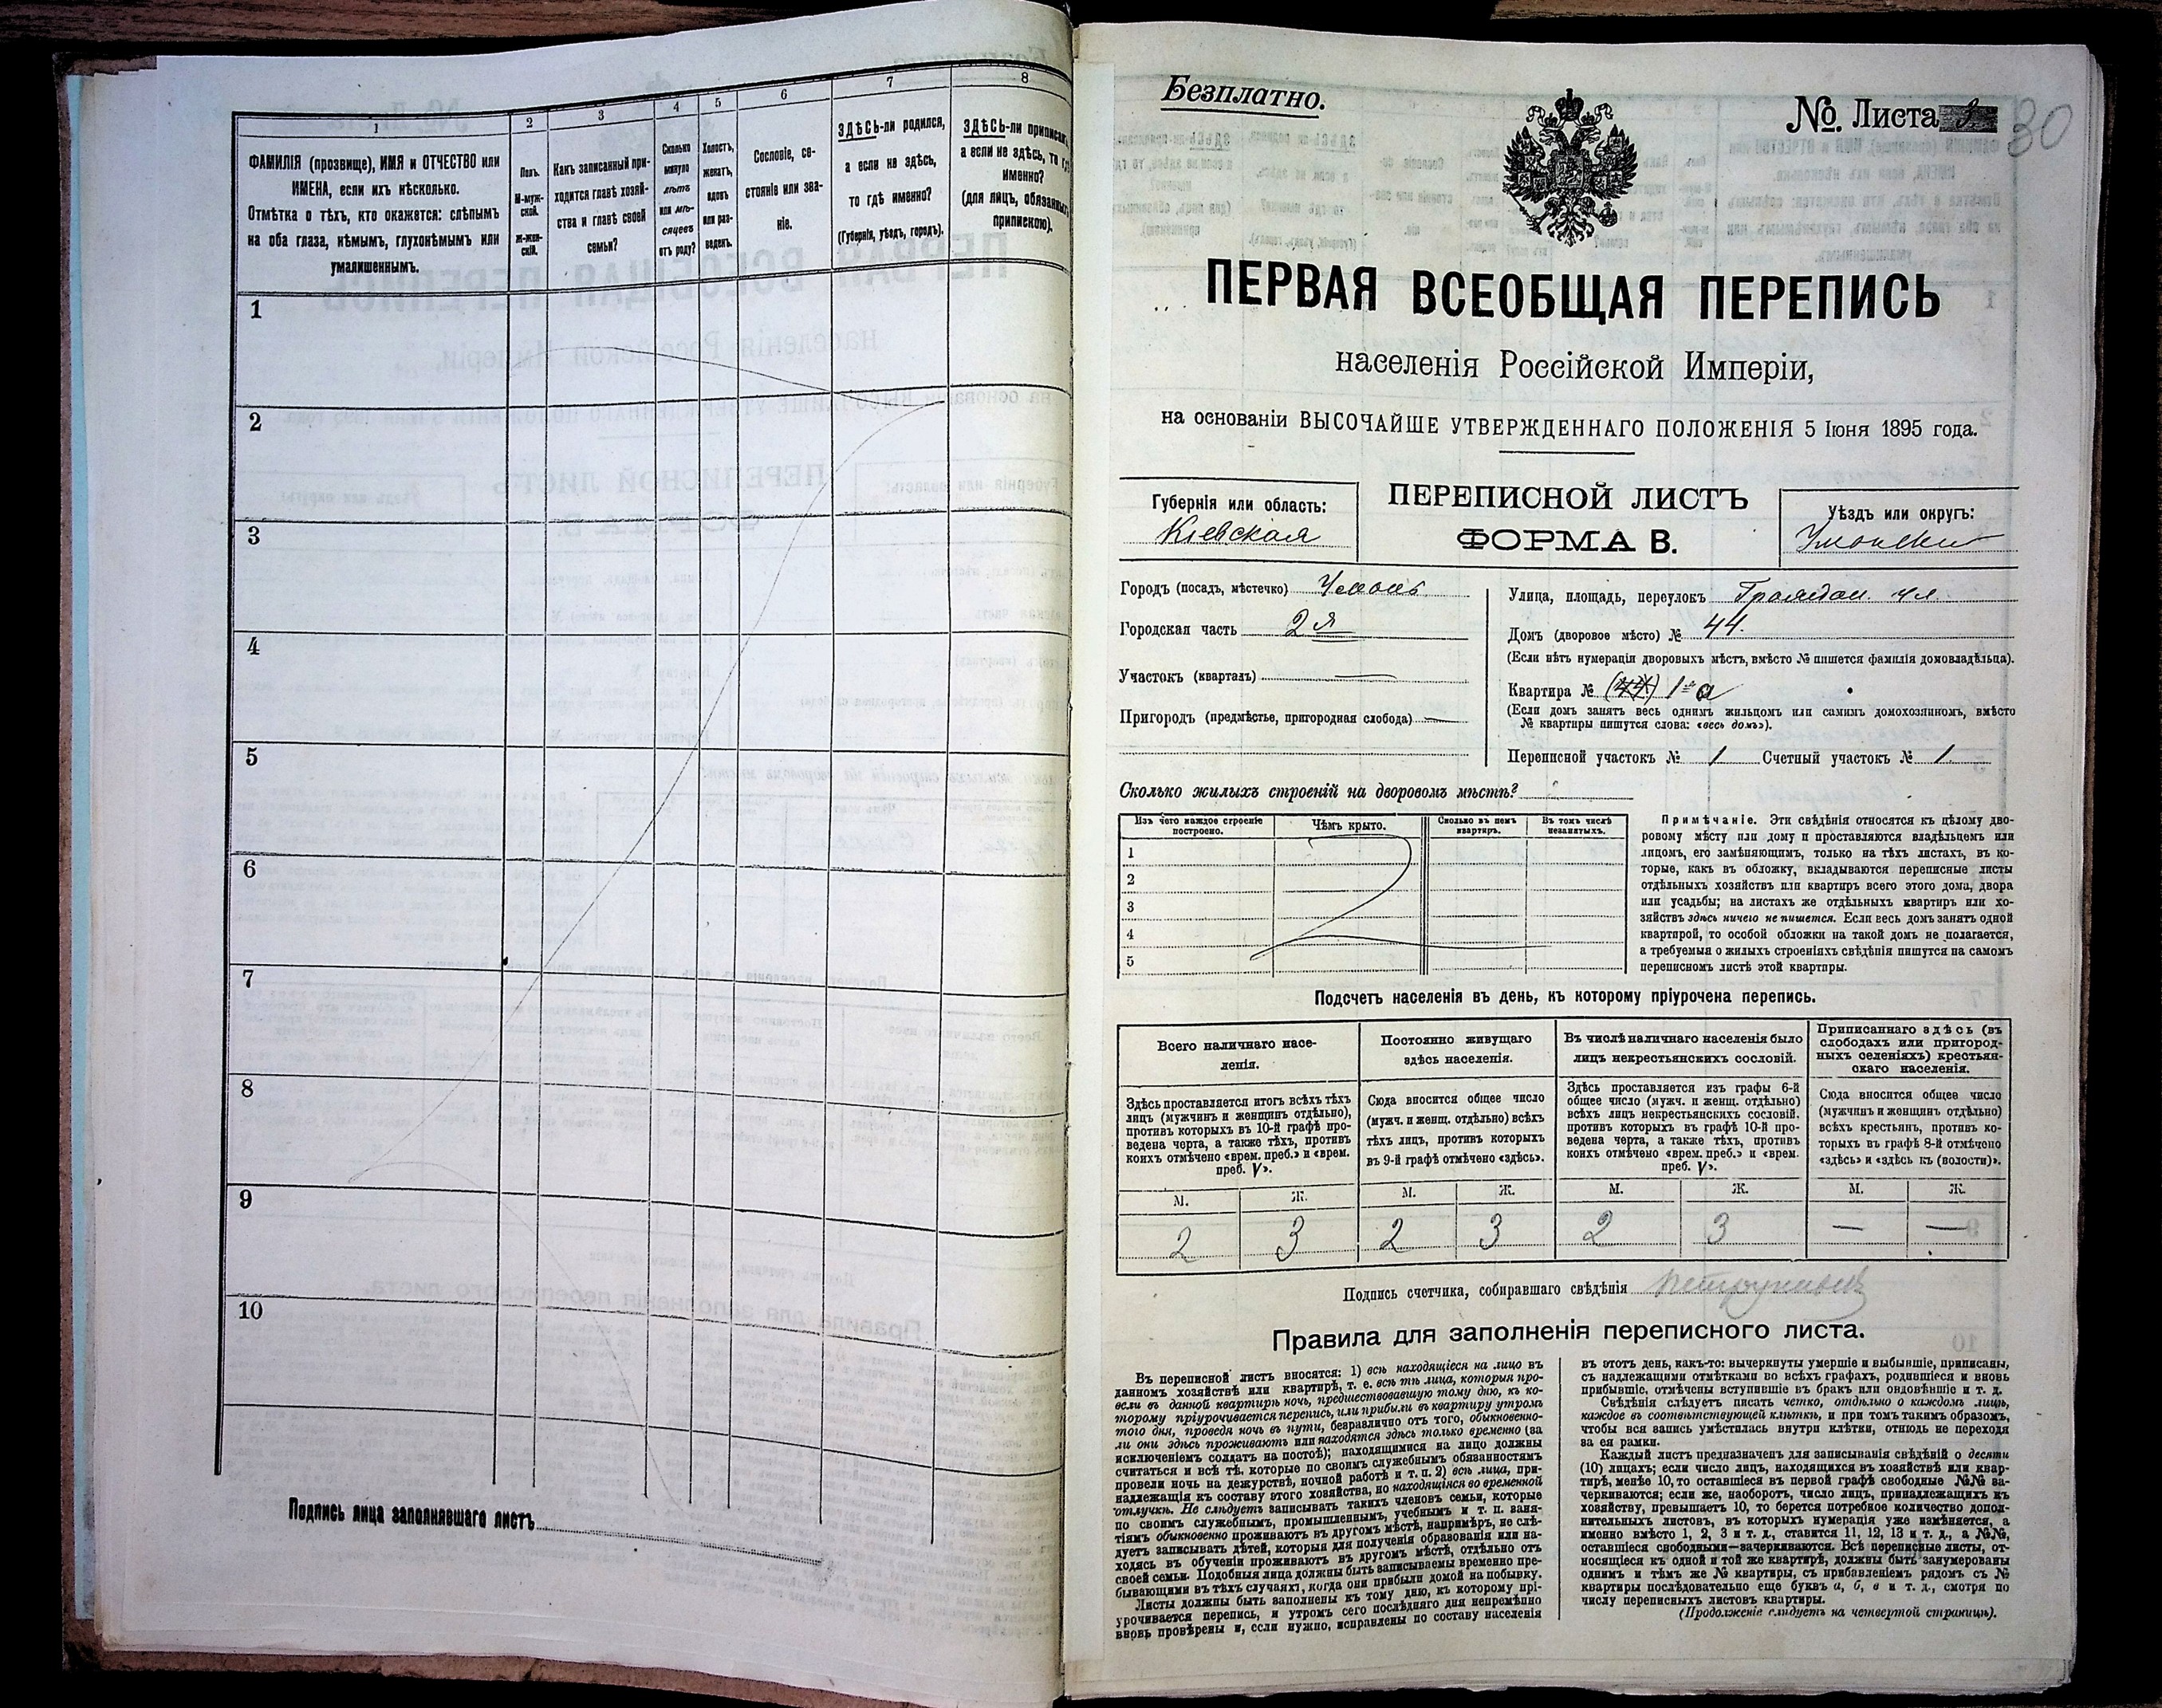 1
2
3
4
5
6
7
8
ФАМИЛІЯ (прозвище), ИМЯ и ОТЧЕСТВО или
ИМЕНА, если ихъ нѣсколько.
Отмѣтка о тѣхъ, кто окажется: слѣпымъ
на оба глаза, нѣмымъ, глухонѣмымъ или
умалишеннымъ.
Полъ.
М-муж-
ской.
Ж-жен-
скій.
Какъ записанный при-
ходится главѣ хозяй-
ства и главѣ своей
семьи?
Сколько
минуло
лѣтъ
или мѣ-
сяцевъ
отъ роду?
Холостъ,
женатъ,
вдовъ
или раз-
веденъ.
Сословіе, со-
стояніе или зва-
ніе.
ЗДѢСЬ-ли родился,
а если не здѣсь,
то гдѣ именно?
(Губернія, уѣздъ, городъ).
ЗДѢСЬ-ли приписан
а если не здѣсь, то г
именно?
(для лицъ, обязанны
припискою).
1
2
3
4
5
6
7
8
9
10
Подпись лица заполнявшаго листъ
Безплатно.
№ Листа 3
30
ПЕРВАЯ ВСЕОБЩАЯ ПЕРЕПИСЬ
населенія Россійской Имперіи,
на основаніи ВЫСОЧАЙШЕ УТВЕРЖДЕННАГО ПОЛОЖЕНІЯ 5 Іюня 1895 года.
Губернія или область:
Кіевская
ПЕРЕПИСНОЙ ЛИСТЪ
ФОРМА В.
Уѣздъ или округъ:
Уманскій
Городъ (посадъ, мѣстечко) Умань
Городская часть 2я
Участокъ (кварталъ) —
Пригородъ (предмѣстье, пригородная слобода) —
Улица, площадь, переулокъ Граждан. ул.
Домъ (дворовое мѣсто) № 44.
(Если нѣтъ нумераціи дворовыхъ мѣстъ, вмѣсто № пишется фамилія домовладѣльца).
Квартира № (44) 1 а
(Если домъ занятъ весь однимъ жильцомъ или самимъ домохозяиномъ, вмѣсто
№ квартиры пишутся слова: «весь домъ»).
Переписной участокъ № 1 Счетный участокъ № 1.
Сколько жилыхъ строеній на дворовомъ мѣстѣ?
Изъ чего каждое строеніе
построено.
Чѣмъ крыто.
Сколько въ немъ
квартиръ.
Въ томъ числѣ
незанятыхъ.
1
2
3
4
5
Примѣчаніе. Эти свѣдѣнія относятся къ цѣлому дво-
ровому мѣсту или дому и проставляются владѣльцемъ или
лицомъ, его замѣняющимъ, только на тѣхъ листахъ, въ ко-
торые, какъ въ обложку, вкладываются переписные листы
отдѣльныхъ хозяйствъ или квартиръ всего этого дома, двора
или усадьбы; на листахъ же отдѣльныхъ квартиръ или хо-
зяйствъ здѣсь ничего не пишется. Если весь домъ занятъ одной
квартирой, то особой обложки на такой домъ не полагается,
а требуемыя о жилыхъ строеніяхъ свѣдѣнія пишутся на самомъ
переписномъ листѣ этой квартиры.
Подсчетъ населенія въ день, къ которому пріурочена перепись.
Всего наличнаго насе-
ленія.
Постоянно живущаго
здѣсь населенія.
Въ числѣ наличнаго населенія было
лицъ некрестьянскихъ сословій.
Приписаннаго здѣсь (въ
слободахъ или пригород-
ныхъ селеніяхъ) крестьян-
скаго населенія.
Здѣсь проставляется итогъ всѣхъ тѣхъ
лицъ (мужчинъ и женщинъ отдѣльно),
противъ которыхъ въ 10-й графѣ про-
ведена черта, а также тѣхъ, противъ
коихъ отмѣчено «врем. преб.» и «врем.
преб. V».
Сюда вносится общее число
(мужч. и женщ. отдѣльно) всѣхъ
тѣхъ лицъ, противъ которыхъ
въ 9-й графѣ отмѣчено «здѣсь».
Здѣсь проставляется изъ графы 6-й
общее число (мужч. и женщ. отдѣльно)
всѣхъ лицъ некрестьянскихъ сословій.
противъ которыхъ въ графѣ 10-й про-
ведена черта, а также тѣхъ, противъ
коихъ отмѣчено «врем. преб.» и «врем.
преб. V».
Сюда вносится общее число
(мужчинъ и женщинъ отдѣльно)
всѣхъ крестьянъ, противъ ко-
торыхъ въ графѣ 8-й отмѣчено
«здѣсь» и «здѣсь къ (волости)».
М. Ж. М. Ж. М. Ж. М. Ж.
2 3 2 3 2 3 — —
Подпись счетчика, собиравшаго свѣдѣнія
Правила для заполненія переписного листа.
Въ переписной листъ вносятся: 1) всѣ находящіеся на лицо въ
данномъ хозяйствѣ или квартирѣ, т. е. всѣ тѣ лица, которыя про-
вели въ данной квартирѣ ночь, предшествовавшую тому дню, къ ко-
торому пріурочивается перепись, или прибыли въ квартиру утромъ
того дня, проведя ночь въ пути, безразлично отъ того, обыкновенно-
ли они здѣсь проживаютъ или находятся здѣсь только временно (за
исключеніемъ солдатъ на постоѣ); находящимися на лицо должны
считаться и всѣ тѣ, которые по своимъ служебнымъ обязанностямъ
провели ночь на дежурствѣ, ночной работѣ и т. п. 2) всѣ лица, при-
надлежащія къ составу этого хозяйства, но находящіяся во временной
отлучкѣ. Не слѣдуетъ записывать такихъ членовъ семьи, которые
по своимъ служебнымъ, промышленнымъ, учебнымъ и т. п. заня-
тіямъ обыкновенно проживаютъ въ другомъ мѣстѣ, напримѣръ, не слѣ-
дуетъ записывать дѣтей, которыя для полученія образованія или на-
ходясь въ обученіи проживаютъ въ другомъ мѣстѣ, отдѣльно отъ
своей семьи. Подобныя лица должны быть записываемы временно пре-
бывающими въ тѣхъ случаяхъ, когда они прибыли домой на побывку.
Листы должны быть заполнены къ тому дню, къ которому прі-
урочивается перепись, и утромъ сего послѣдняго дня непремѣнно
вновь провѣрены и, если нужно, исправлены по составу населенія
въ этотъ день, какъ-то: вычеркнуты умершіе и выбывшіе, приписаны,
съ надлежащими отмѣтками во всѣхъ графахъ, родившіеся и вновь
прибывшіе, отмѣчены вступившіе въ бракъ или овдовѣвшіе и т. д.
Свѣдѣнія слѣдуетъ писать четко, отдѣльно о каждомъ лицѣ,
каждое въ соотвѣтствующей клѣткѣ, и при томъ такимъ образомъ,
чтобы вся запись умѣстилась внутри клѣтки, отнюдь не переходя
за ея рамки.
Каждый листъ предназначенъ для записыванія свѣдѣній о десяти
(10) лицахъ; если число лицъ, находящихся въ хозяйствѣ или квар-
тирѣ, менѣе 10, то оставшіеся въ первой графѣ свободные №№ за-
черкиваются; если же, наоборотъ, число лицъ, принадлежащихъ къ
хозяйству, превышаетъ 10, то берется потребное количество допол-
нительныхъ листовъ, въ которыхъ нумерація уже измѣняется, а
именно вмѣсто 1, 2, 3 и т. д., ставится 11, 12, 13 и т. д., а №№,
оставшіеся свободными—зачеркиваются. Всѣ переписные листы, от-
носящіеся къ одной и той же квартирѣ, должны быть занумерованы
однимъ и тѣмъ же № квартиры, съ прибавленіемъ рядомъ съ №
квартиры послѣдовательно еще буквъ а, б, в и т. д., смотря по
числу переписныхъ листовъ квартиры.
(Продолженіе слѣдуетъ на четвертой страницѣ).